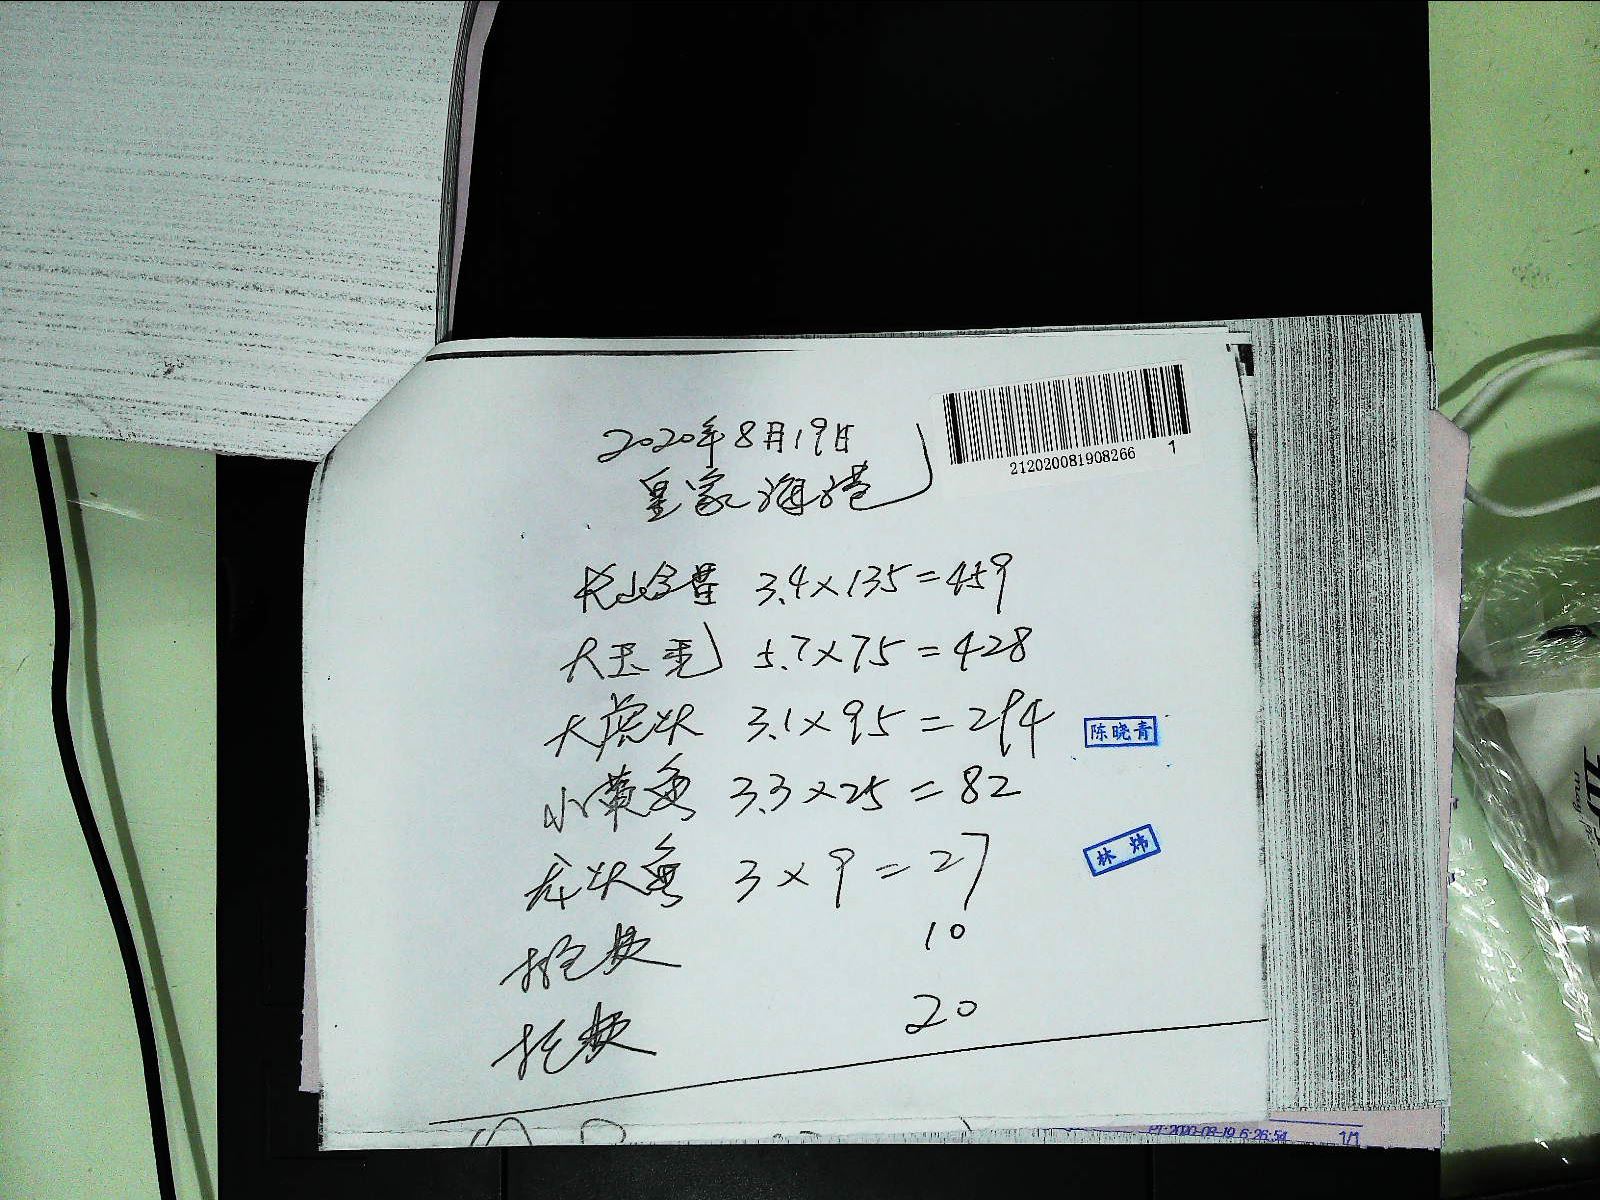 2020年8月19日
皇家海港
212020081908266 1
3.4×135=459
大玉秃 5.7×75=428
大虎状 3.1×95=294
陈晓青
小黄鱼 3.3×25=82
龙状鱼 3×9=27
林炜
10
20
2020-08-19 6:26:54 1/1